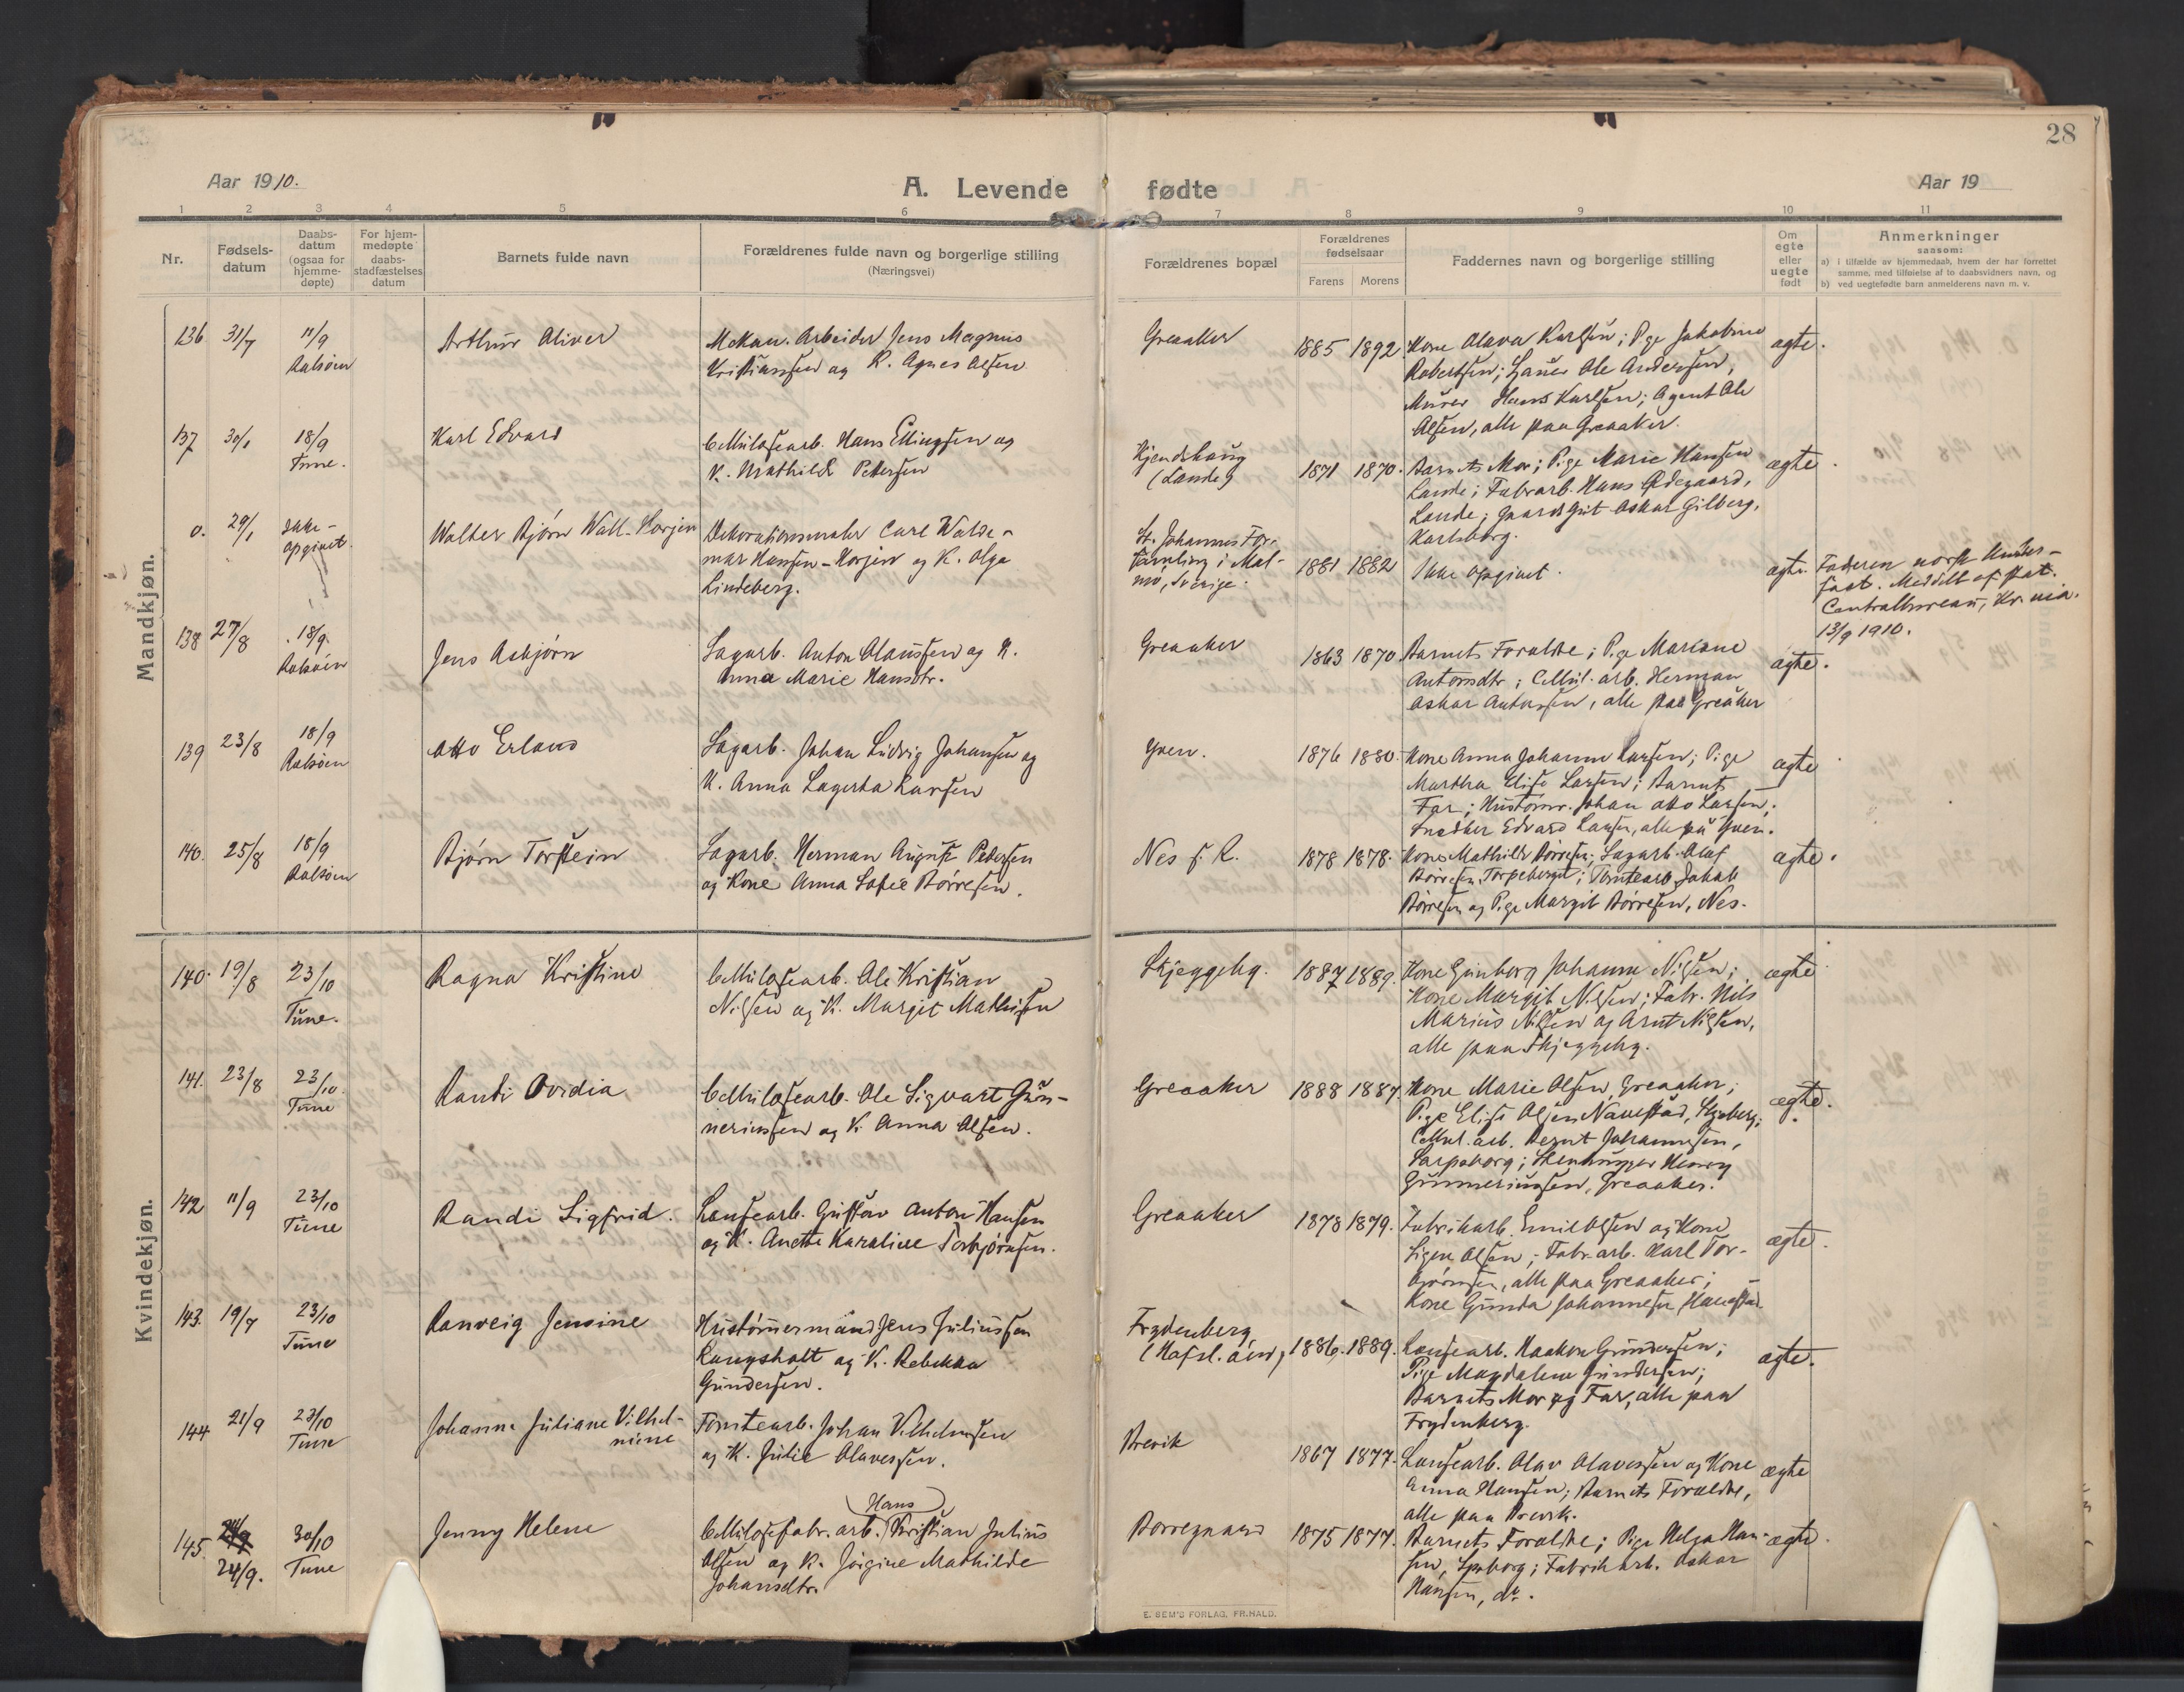 28
Aar 1910.
A. Levende fødte
Aar 19
1 2 3 4 5 6 7 8 9 10 11
Nr.
Fødsels-
datum
Daabs-
datum
(ogsaa for
hjemme-
døpte)
For hjem-
medøpte
daabs-
stadfæstelses
datum
Barnets fulde navn
Forældrenes fulde navn og borgerlige stilling
(Næringsvei)
Forældrenes bopæl
Forældrenes
fødselsaar
Farens Morens
Faddernes navn og borgerlige stilling
Om
egte
eller
uegte
født
Anmerkninger
saasom:
a) i tilfælde av hjemmedaab, hvem der har forrettet
samme, med tilføielse af to daabsvidners navn, og
b) ved uegtefødte barn anmelderens navn m. v.
Mandkjøn.
136 31/7 11/9
Rolvsøen
Arthur Oliver
Mekan. Arbeider Jens Magnus
Kristianssen og K. Agnes Olsen
Greaaker
1885 1892.
Kone Olava Karlsen; Pige Jakobine
Robertsen; Ole Andersen,
Murer Hans Karlsen; Agent Ole
Olsen, alle paa Greaaker.
egte.
137 30/1 18/9
Tune.
Karl Edvard
Cellulosearb. Hans Ellingsen og
K. Mathilde Petersen
(Lande)
1871 1870.
Barnets Mor; Pige Marie Hansen
Lande; Fabrarb. Hans Ødegaard,
Lande; Gaardsgut Oskar Gilberg,
Karlsborg.
egte.
0. 29/1 ikke
opgivet
Walter Bjørn Wall-Horjen
Dekorationsmaler Carl Walde-
mar Hansen-Horjen og K. Olga
Lindeberg.
St. Johannes For-
samling i Mal-
mø, Sverige.
1881 1882
Ikke opgivet.
egte.
Faderen norsk
. Meddelt af stat.
Centralbureau, Kr.nia.
13/9 1910.
138 27/8 18/9
Rolvsøen
Jens Asbjørn
Sagarb. Anton Olaussen og K.
Anna Marie Hansdtr.
Greaaker
1863 1870
Barnets Forældre; Pige Mariane
Antonsdtr; Cellul. arb. Herman
Oskar Antonsen, alle paa Greaker
egte.
139 23/8 18/9
Rolvsøen
Otto Erland
Sagarb. Johan Ludvig Johansen og
K. Anna Lagerta Larsen
Yven.
1876 1880.
Kone Anna Johanne Larsen; Pige
Martha Elise Larsen; Barnets
Far; Hustømr. Johan Otto Larsen;
Snedker Edvard Larsen, alle på Yven.
egte
140. 25/8 18/9
Rolvsøen
Bjørn Torstein
Sagarb. Herman August Petersen
og Kone Anna Sofie Børresen.
Nes f. R.
1878 1878.
Kone Mathilde Børresen; Sagarb. Olaf
Børresen, Torpeberget; Tomtearb. Jakob
Børresen og Pige Margit Børresen, Nes.
egte.
Kvindekjøn.
140. 19/8 23/10
Tune.
Ragna Kristine
Cellulosearb. Ole Kristian
Nilsen og K. Margit Mathisen
Skjeggeby.
1887 1889.
Kone Gunborg Johanne Nilsen;
Kone Margit Nilsen; Fabr. Nils
Marius Nilsen og Arnt Nilsen,
alle paa Skjeggeby.
egte
141. 23/8 23/10.
Tune
Randi Ovidia
Cellulosearb. Ole Sigvart Gun-
neriussen og K. Anna Olsen.
Greaaker
1888 1887
Kone Marie Olsen, Greaaker;
Pige Elise Olsen Navestad, Skjeberg;
Cellul. arb. Bernt Johannesen,
Sarpsborg; Stenhugger Henry
Gunneriussen, Greaaker.
egte.
142 11/9 23/10
Tune
Randi Sigfrid.
Lænsearb. Gustav Anton Hansen
og K. Anette Karoline Torbjørnsen.
Greaaker
1878 1879.
Fabrikarb. Emil Olsen og Kone
Signe Olsen; Fabr. arb. Karl Tor-
bjørnsen, alle paa Greaaker;
Kone Gunda Johannesen,
egte.
143. 19/7 23/10
Tune
Ranveig Jensine
Hustømmermand Jens Juliussen
Langsholt og K. Rebekka
Gundersen.
Frydenberg
(Hafsl. )
1886. 1889.
Lænsearb. Haakon Gundersen;
Pige Magdalene Gundersen;
Barnets Mor og Far, alle paa
Frydenberg.
egte.
144 21/9 23/10
Tune
Johanne Juliane Vilhel-
mine
Tomtearb. Johan Vilhelmsen
og K. Julie Olavessen.
Brevik
1867 1877.
Lænsearb. Olav Olavessen og Kone
Anna Hansen; Barnets Forældre,
alle paa Brevik.
egte
145. 24/9. 30/10
Tune
Jenny Helene
Hans
Cellulosefabr. arb. Kristian Julius
Olsen og K. Jørgine Mathilde
Johansdtr.
Borregaard
1875 1877.
Barnets Forældre; Pige Helga Han-
sen, Spsborg; Fabrikarb. Oskar
Hansen, do.
egte.
E. SEM'S FORLAG, FR.HALD.